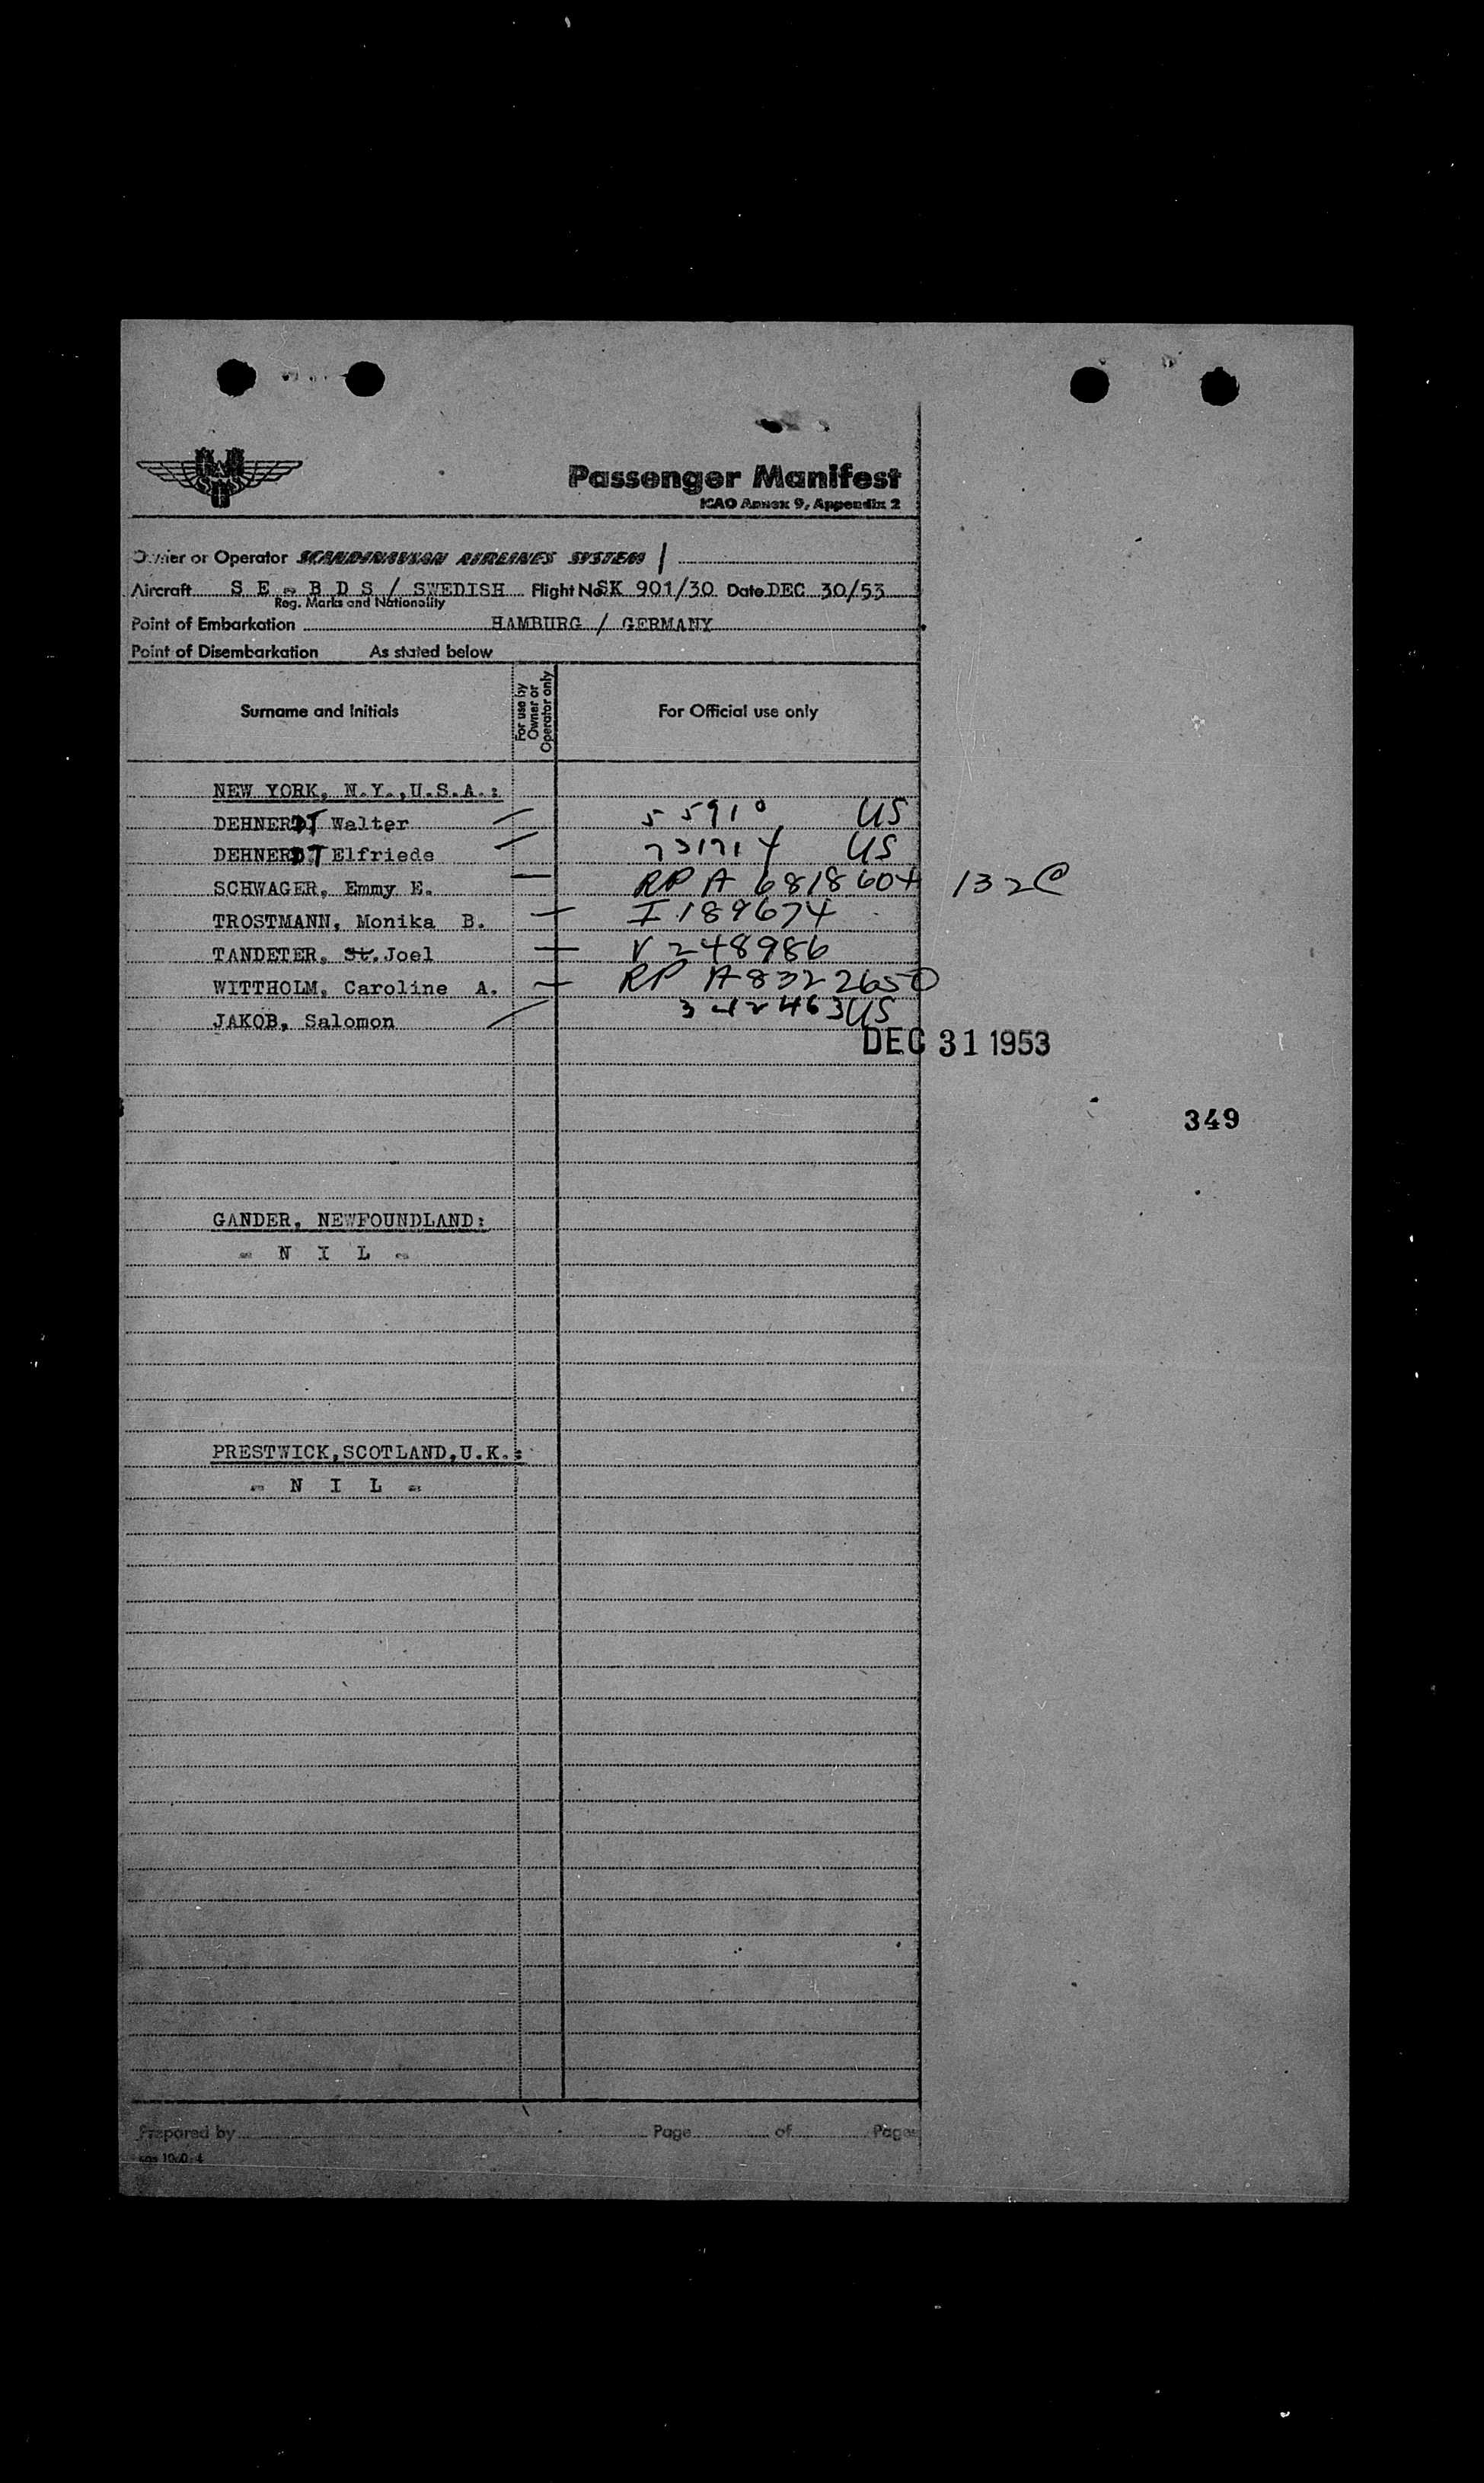 Passenger Manifest
ICAO Annex 9, Appendix 2
Owner or Operator SCANDINAVIAN AIRLINES SYSTEM
Aircraft S E - B D S / SWEDISH Flight No SK 901/30 Date DEC 30/53
Reg. Marks and Nationality
Point of Embarkation HAMBURG / GERMANY
Point of Disembarkation As stated below
Surname and Initials For use by Owner or Operator only For Official use only
NEW YORK, N.Y.,U.S.A.:
DEHNERDT Walter 55910 US
DEHNERDT Elfriede US
SCHWAGER, Emmy E. RP A 6818604 132C
TROSTMANN, Monika B. I 189674
TANDETER, St. Joel V 248986
WITTHOLM, Caroline A. RP A8322650
JAKOB, Salomon 342463 US
DEC 31 1953
349
GANDER, NEWFOUNDLAND:
- N I L -
PRESTWICK,SCOTLAND,U.K.:
- N I L -
Prepared by Page of Pages